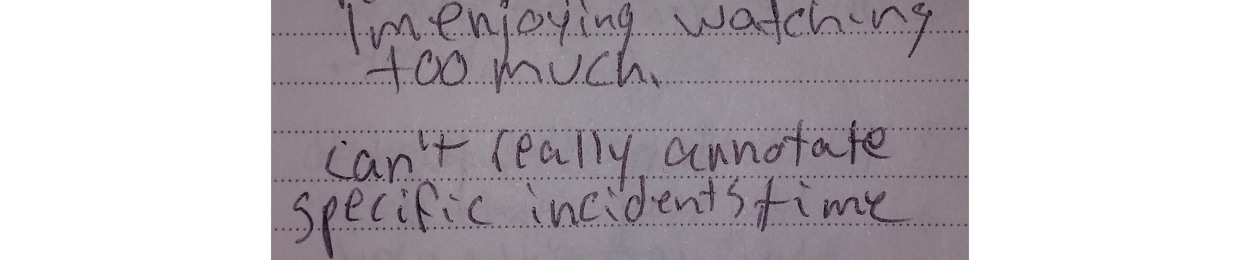 I'm enjoying watching
too much.
can't really annotate
specific incidents time